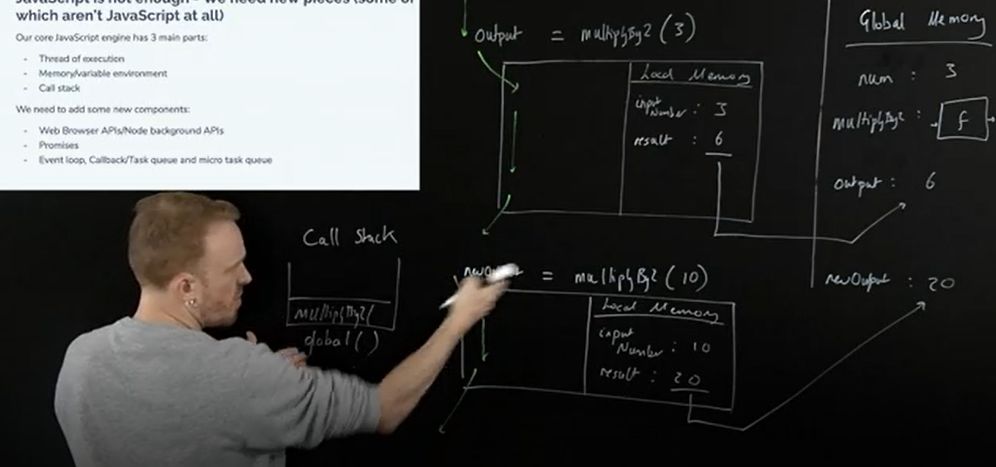 JavaScript is not enough - we need new pieces (some of
which aren't JavaScript at all)
Our core JavaScript engine has 3 main parts:
- Thread of execution
- Memory/variable environment
- Call stack
We need to add some new components:
- Web Browser APIs/Node background APIs
- Promises
- Event loop, Callback/Task queue and micro task queue
Call Stack
multiplyBy2(
global()
output = multiplyBy2 (3)
Local Memory
input
Number : 3
result : 6
= multiplyBy2 (10)
Local Memory
input
Number : 10
result : 20
Global Memory
num : 3
multiplyBy2 : f
output : 6
newOutput : 20